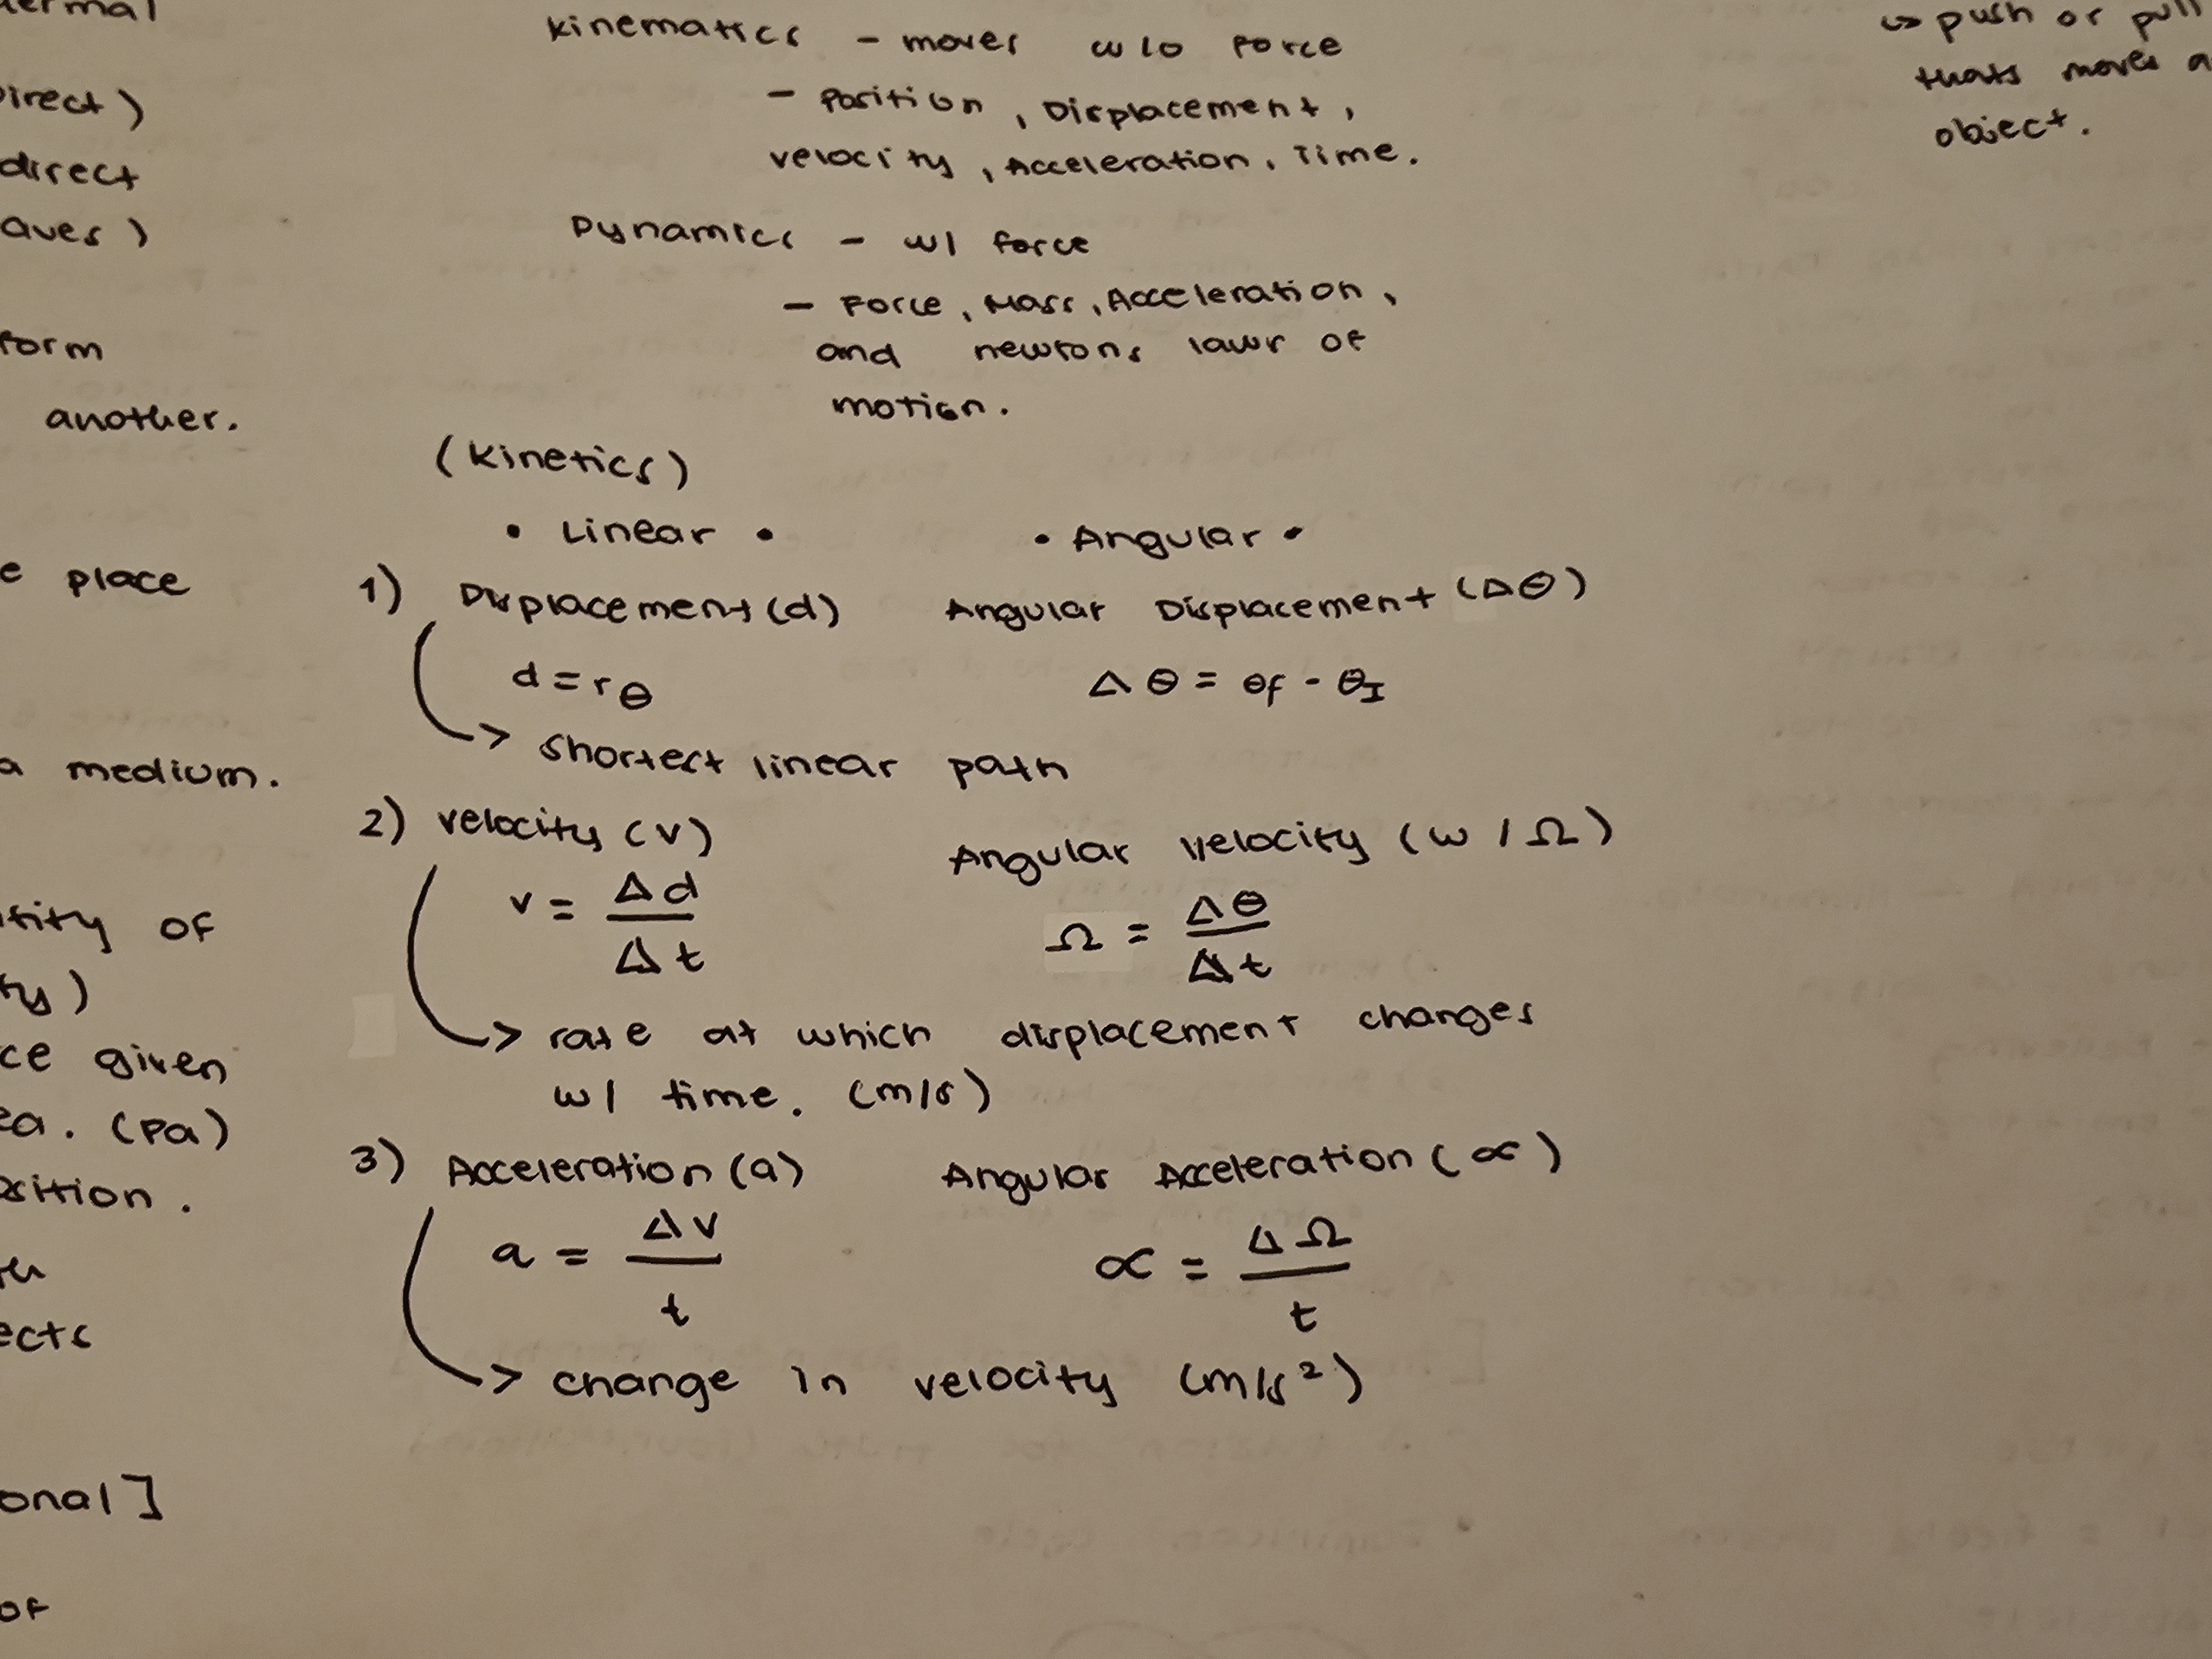 ermal
irect)
direct
aves)
form
another.
e place
a medium.
tity of
ty)
ce given
ea. (Pa)
sition.
ects
onal]
of
Kinematics - moves w/o Force
- Position, Displacement,
velocity, Acceleration, Time.
Dynamics - w/ force
- Force, Mass, Acceleration,
and newtons laws of
motion.
(Kinetics)
• Linear • • Angular •
1) Displacement (d) Angular Displacement (Δθ)
d = rθ Δθ = θf - θI
> shortest linear path
2) velocity (v) Angular Velocity (w / Ω)
v = Δd / Δt Ω = Δθ / Δt
> rate at which displacement changes
w/ time. (m/s)
3) Acceleration (a) Angular Acceleration (∝)
a = Δv / t ∝ = ΔΩ / t
> change in velocity (m/s²)
↳ push or pull
thats moves a
object.